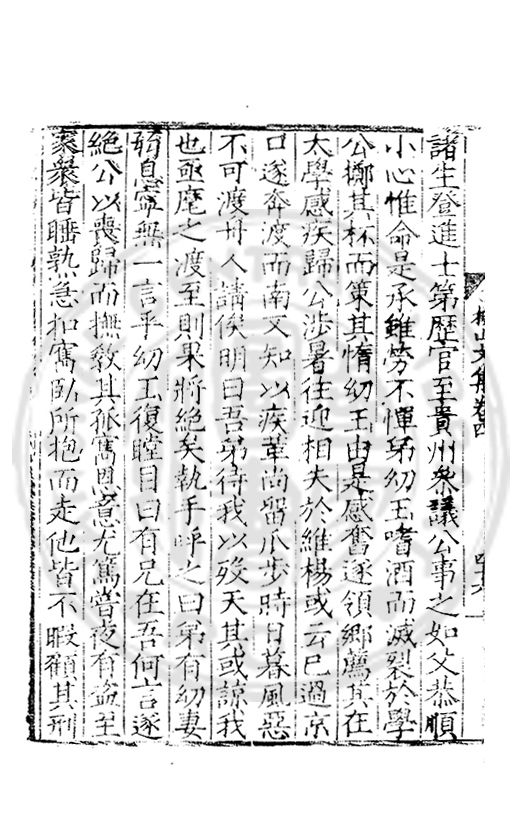 諸生登進士第歷官至貴州叅議公事之如父恭順
小心惟命是承雖勞不憚弟幼玉嗜酒而滅裂於學
公擲其杯而策其惰幼玉由是感奮遂領鄉薦其在
太學感疾歸公渉暑往迎相失於維楊或云已過京
口遂奔渡而南又知以疾革尚留爪步時日暮風惡
不可渡舟人請俟明曰吾弟待我以歿天其或諒我
也亟麾之渡至則果將絶矣執手呼之曰弟有幼妻
弱息寧無一言乎幼玉復瞠目曰有兄在吾何言遂
絶公以喪歸而撫敎其孤寓恩意尤篤嘗夜有盜至
家衆皆睡熟急扣寓臥所抱而走他皆不暇顧其刑
山文集卷四
四十六